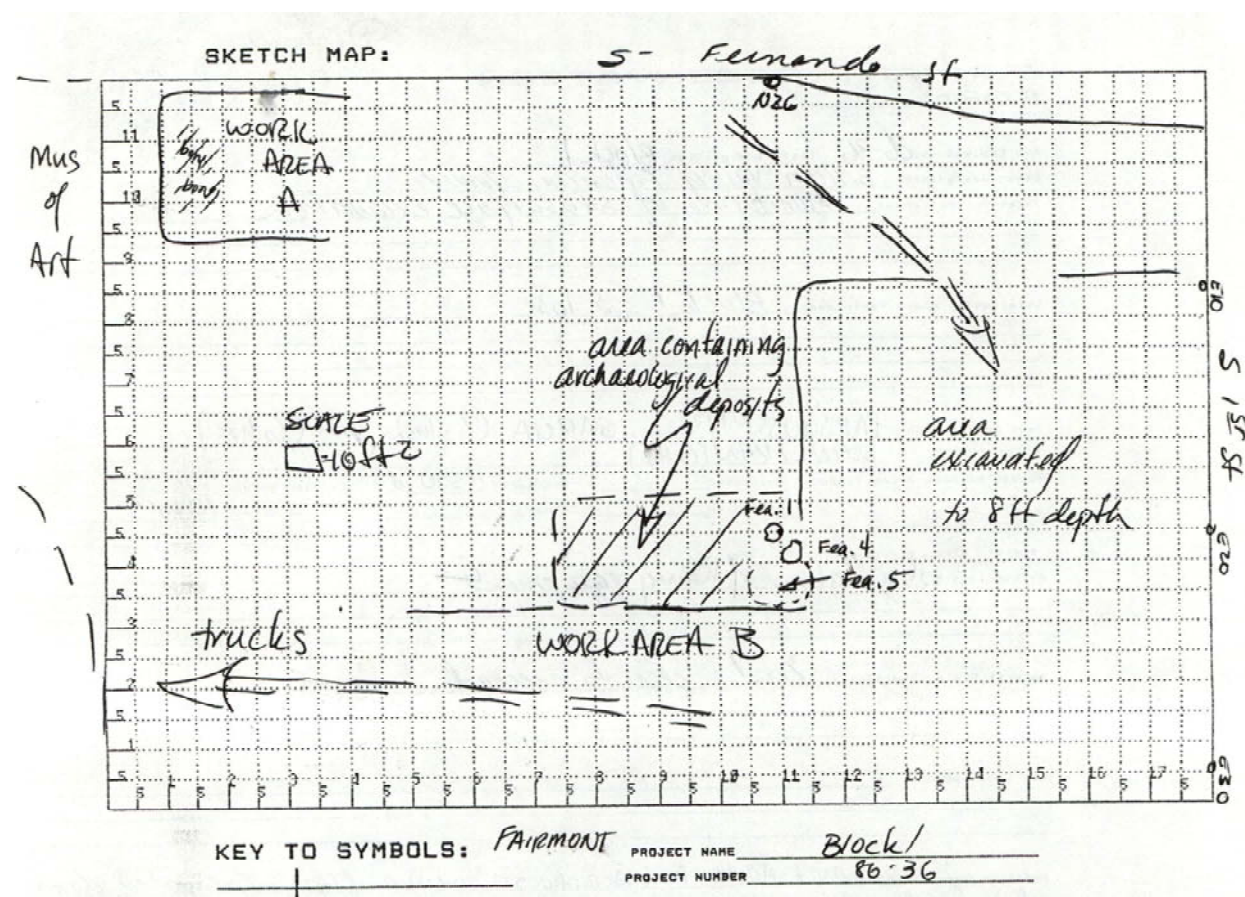 SKETCH MAP:
S Fernando St
N26
Mus
of
Art
WORK
AREA
A
area containing
archaeological
deposits
SCALE
=10ft2
area
excavated
to 8ft depth
E10
S 1st St
E20
E30
Fea. 1
Fea. 4
Fea. 5
trucks
WORK AREA B
5
11
5
10
5
9
5
8
5
7
5
6
5
5
5
4
5
3
5
2
5
1
5 1 5 2 5 3 5 4 5 5 5 6 5 7 5 8 5 9 5 10 5 11 5 12 5 13 5 14 5 15 5 16 5 17 5
KEY TO SYMBOLS: FAIRMONT PROJECT NAME Block 1
PROJECT NUMBER 86-36